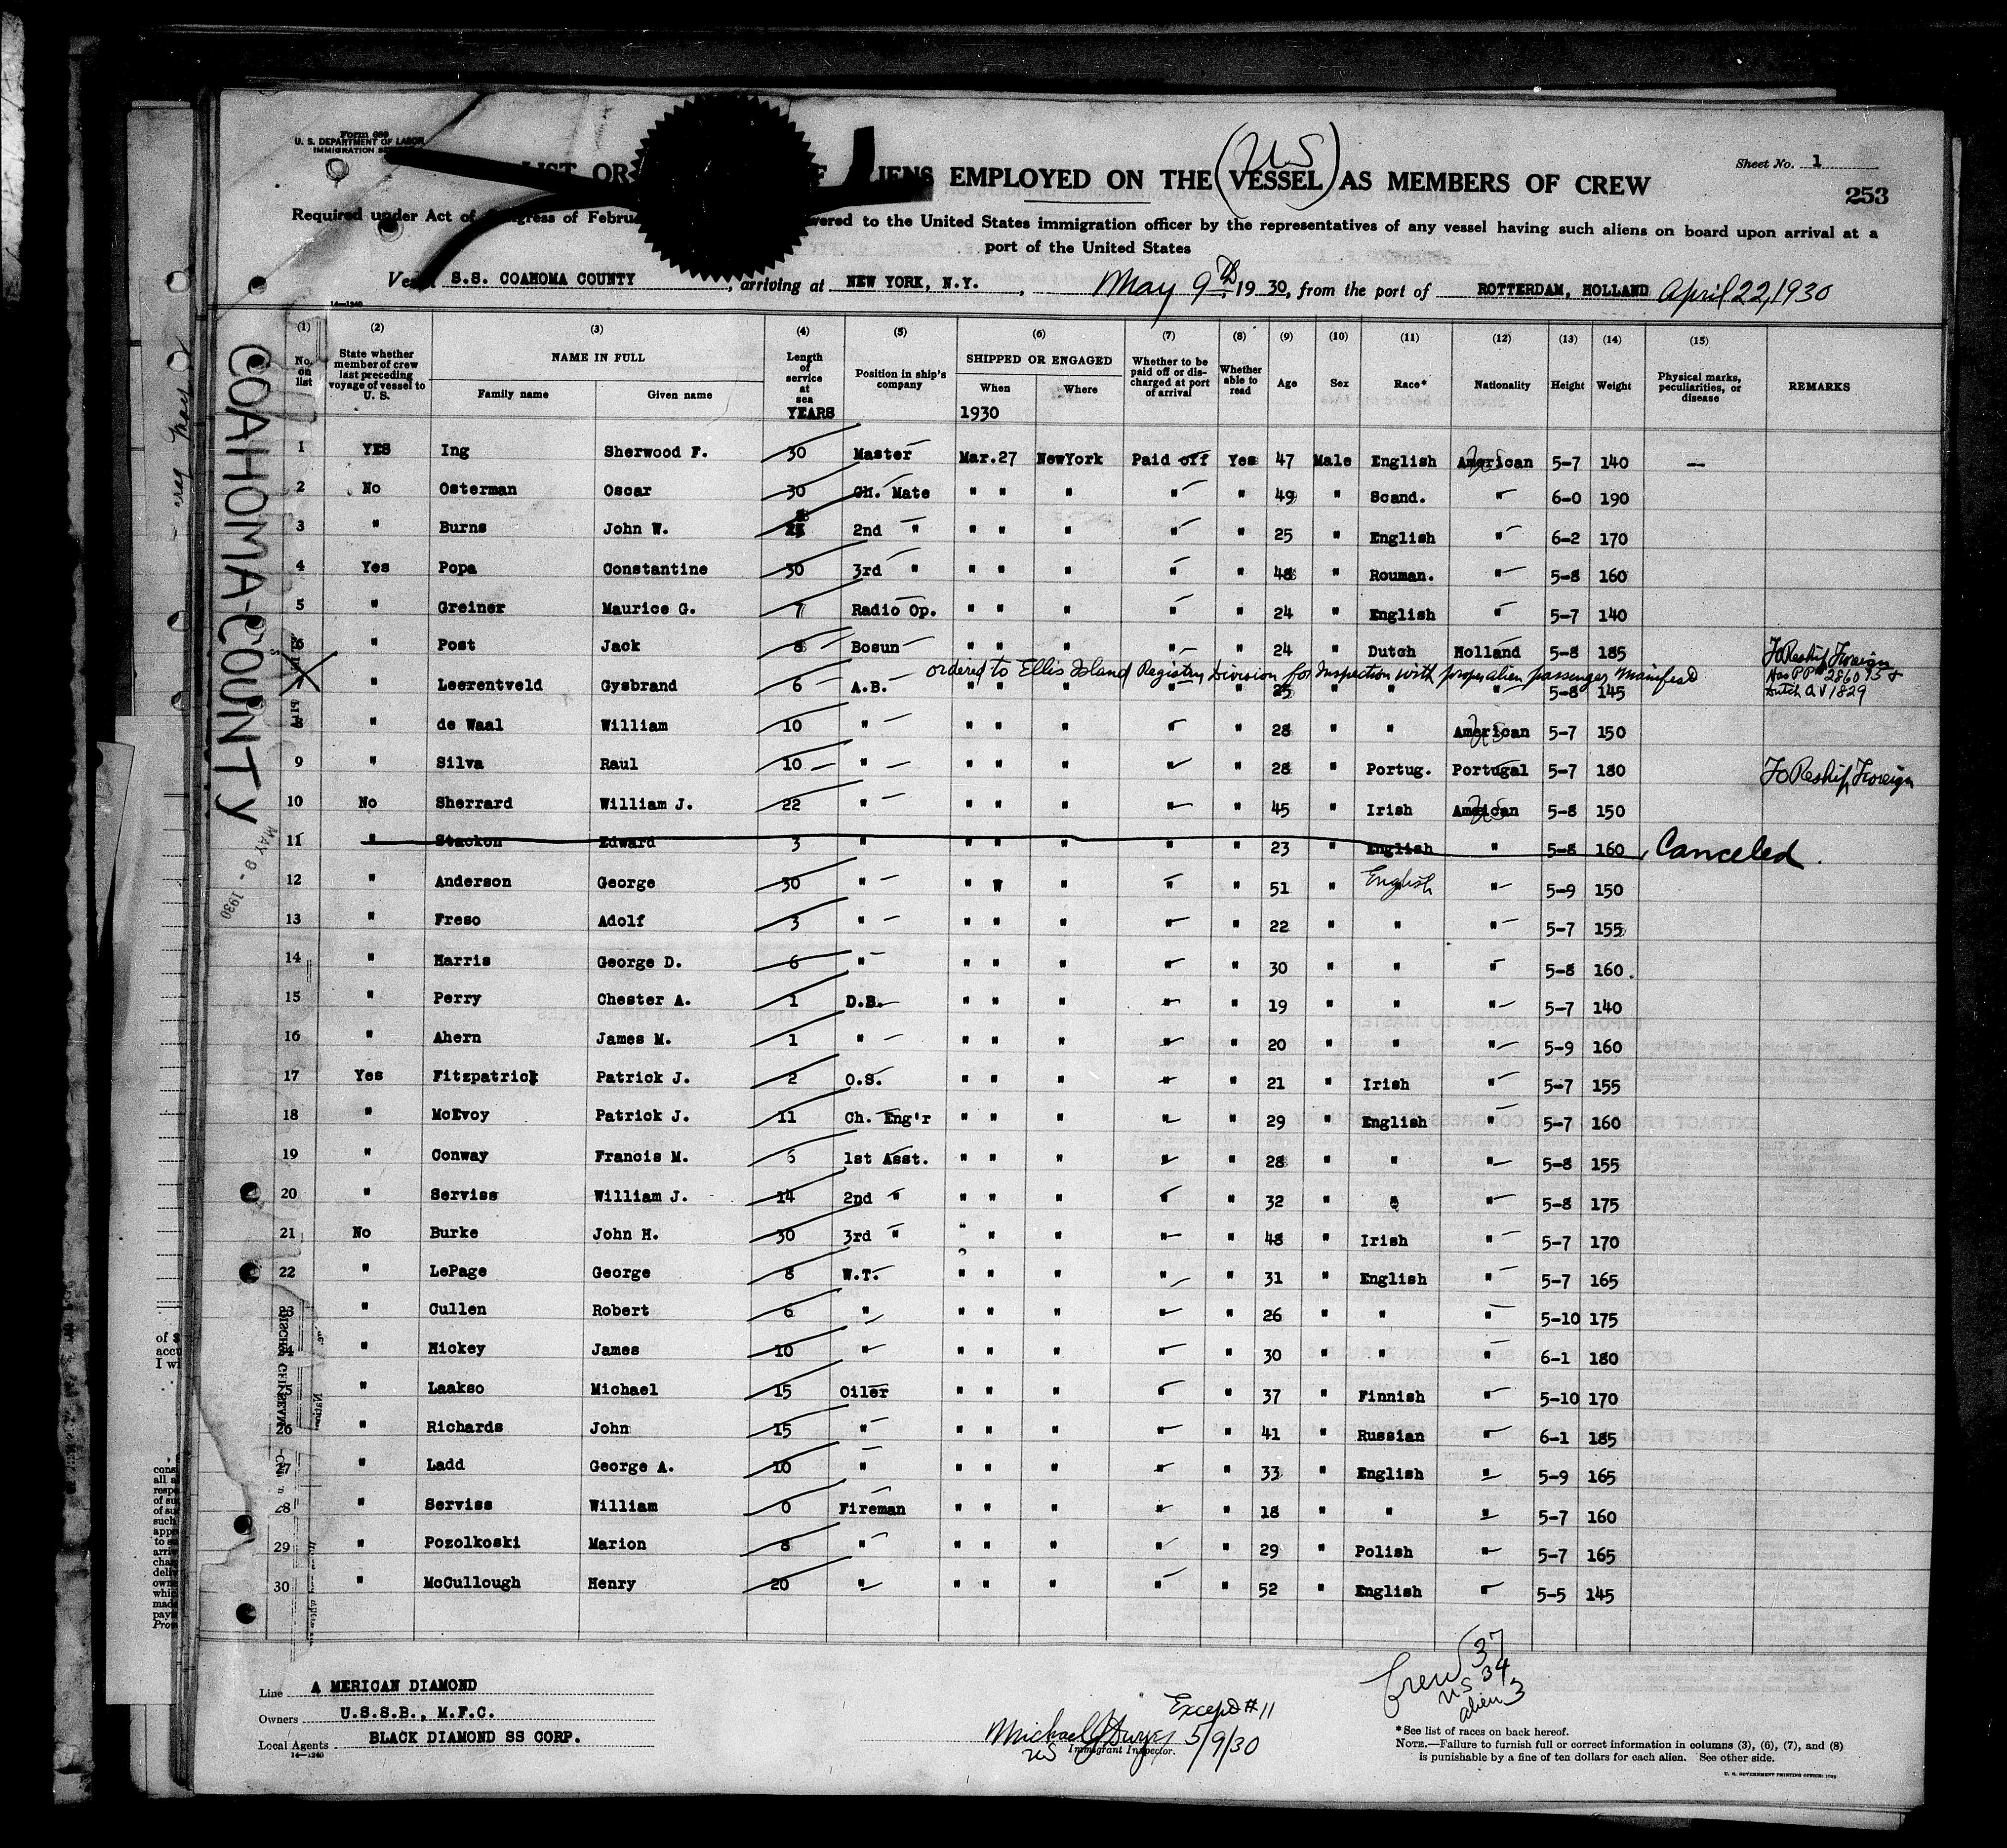 Form 680
U. S. DEPARTMENT OF LABOR
IMMIGRATION
Sheet No. 1
253
LIST OR ALIENS EMPLOYED ON THE (VESSEL) AS MEMBERS OF CREW
(US)
Required under Act of Congress of Februa vered to the United States immigration officer by the representatives of any vessel having such aliens on board upon arrival at a
port of the United States
Vessel S.S. COAHOMA COUNTY, arriving at NEW YORK, N.Y., May 9th, 1930, from the port of ROTTERDAM, HOLLAND April 22, 1930
14—1240
COAHOMA-COUNTY
MAY 9 - 1930
(1) (2) (3) (4) (5) (6) (7) (8) (9) (10) (11) (12) (13) (14) (15)
No. on list | State whether member of crew last preceding voyage of vessel to U. S. | NAME IN FULL Family name Given name | Length of service at sea YEARS | Position in ship's company | SHIPPED OR ENGAGED When 1930 Where | Whether to be paid off or discharged at port of arrival | Whether able to read | Age | Sex | Race* | Nationality | Height | Weight | Physical marks, peculiarities, or disease | REMARKS
1 YES Ing Sherwood F. 30 Master Mar.27 NewYork Paid off Yes 47 Male English American US 5-7 140 —
2 No Osterman Oscar 30 Ch. Mate " " " " " 49 " Scand. " 6-0 190
3 " Burns John W. 2nd " " " " " " 25 " English " 6-2 170
4 Yes Popa Constantine 30 3rd " " " " " " 48 " Rouman. " 5-8 160
5 " Greiner Maurice G. 7 Radio Op. " " " " " 24 " English " 5-7 140
6 " Post Jack 8 Bosun " " " " " 24 " Dutch Holland 5-8 185 To Reship Foreign
ordered to Ellis Island Registry Division for Inspection with proper alien passenger manifest
7 " Leerentveld Gysbrand 6 A.B. " " " " " 25 " " " 5-8 145 Has PP# 286095 & Dutch QV 1829
8 " de Waal William 10 " " " " " " 28 " " American US 5-7 150
9 " Silva Raul 10 " " " " " " 28 " Portug. Portugal 5-7 180 To Reship Foreign
10 No Sherrard William J. 22 " " " " " " 45 " Irish American US 5-8 150
11 " Stackon Edward 3 " " " " " " 23 " English " 5-8 160 Canceled.
12 " Anderson George 30 " " " " " " 51 " English " 5-9 150
13 " Freso Adolf 3 " " " " " " 22 " " " 5-7 155
14 " Harris George D. 6 " " " " " " 30 " " " 5-8 160
15 " Perry Chester A. 1 D.B. " " " " " 19 " " " 5-7 140
16 " Ahern James M. 1 " " " " " " 20 " " " 5-9 160
17 Yes Fitzpatrick Patrick J. 2 O.S. " " " " " 21 " Irish " 5-7 155
18 " McEvoy Patrick J. 11 Ch. Eng'r " " " " " 29 " English " 5-7 160
19 " Conway Francis M. 6 1st Asst. " " " " " 28 " " " 5-8 155
20 " Serviss William J. 14 2nd " " " " " " 32 " " " 5-8 175
21 No Burke John H. 30 3rd " " " " " " 48 " Irish " 5-7 170
22 " LePage George 8 W.T. " " " " " 31 " English " 5-7 165
23 " Cullen Robert 6 " " " " " " 26 " " " 5-10 175
24 " Hickey James 10 " " " " " " 30 " " " 6-1 180
25 " Laakso Michael 15 Oiler " " " " " 37 " Finnish " 5-10 170
26 " Richards John 15 " " " " " " 41 " Russian " 6-1 185
27 " Ladd George A. 10 " " " " " " 33 " English " 5-9 165
28 " Serviss William 0 Fireman " " " " " 18 " " " 5-7 160
29 " Pozolkoski Marion 8 " " " " " " 29 " Polish " 5-7 165
30 " McCullough Henry 20 " " " " " " 52 " English " 5-5 145
Crew 37
US 34
alien 3
Line A MERICAN DIAMOND
Owners U.S.S.B., M.F.C.
Local Agents BLACK DIAMOND SS CORP.
14—1240
Except #11
Michael J Dwyer 5/9/30
US Immigrant Inspector.
*See list of races on back hereof.
NOTE.—Failure to furnish full or correct information in columns (3), (6), (7), and (8)
is punishable by a fine of ten dollars for each alien. See other side.
U. S. GOVERNMENT PRINTING OFFICE